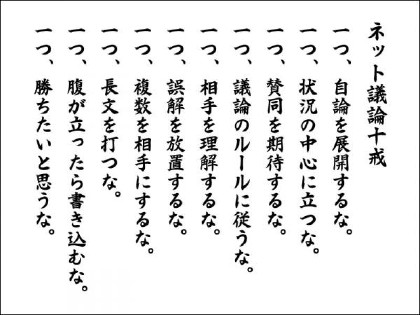 ネット議論十戒
一つ、自論を展開するな。
一つ、状況の中心に立つな。
一つ、賛同を期待するな。
一つ、議論のルールに従うな。
一つ、相手を理解するな。
一つ、誤解を放置するな。
一つ、複数を相手にするな。
一つ、長文を打つな。
一つ、腹が立ったら書き込むな。
一つ、勝ちたいと思うな。